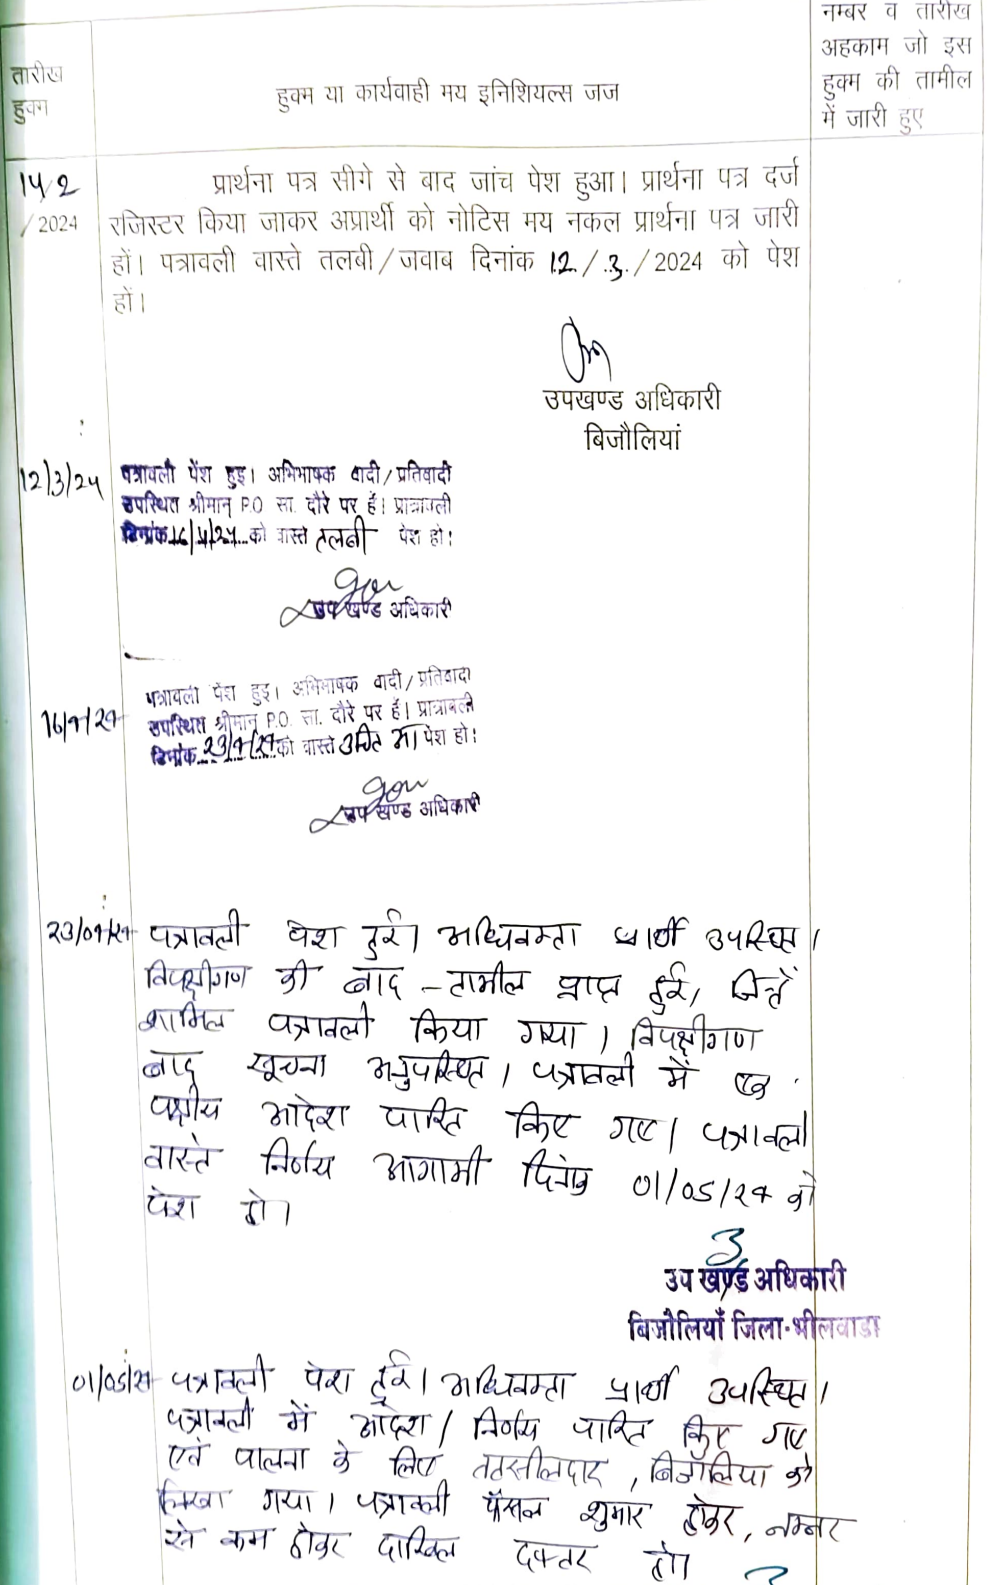 तारीख
हुक्म
हुक्म या कार्यवाही मय इनिशियल्स जज
नम्बर व तारीख
अहकाम जो इस
हुक्म की तामील
में जारी हुए
14/2
/2024
प्रार्थना पत्र सीगे से बाद जांच पेश हुआ। प्रार्थना पत्र दर्ज
रजिस्टर किया जाकर अप्रार्थी को नोटिस मय नकल प्रार्थना पत्र जारी
हों। पत्रावली वास्ते तलबी/जवाब दिनांक 12/.3./2024 को पेश
हों।
उपखण्ड अधिकारी
बिजौलियां
12/3/24
पत्रावली पेंश हुइ। अभिभाषक वादी/प्रतिवादी
उपस्थित श्रीमान् P.O सा. दौरे पर हैं। प्रात्रावली
दिनांक 16/4/24 को वास्ते तलबी पेश हो।
उप खण्ड अधिकारी
16/4/24
पत्रावली पेंश हुइ। अभिभाषक वादी/प्रतिवादी
उपस्थित श्रीमान् P.O. सा. दौरे पर हैं। प्रात्रावली
दिनांक 23/4/24 को वास्ते पेश हो।
उप खण्ड अधिकारी
23/04/24
पत्रावली पेश हुई। अधिवक्ता प्रार्थी उपस्थित।
विपक्षीगण की बाद -तामील प्राप्त हुई, जिन्हें
शामिल पत्रावली किया गया। विपक्षीगण
बाद सूचना अनुपस्थित। पत्रावली में एक
पक्षीय आदेश पारित किए गए। पत्रावली
वास्ते निर्णय आगामी दिनांक 01/05/24 को
पेश हो।
उप खण्ड अधिकारी
बिजौलियाँ जिला-भीलवाडा
01/05/24
पत्रावली पेश हुई। अधिवक्ता प्रार्थी उपस्थित।
पत्रावली में आदेश/निर्णय पारित किए गए
एवं पालना के लिए तहसीलदार, बिजौलिया को
लिखा गया। पत्रावली फैसल शुमार होकर, नम्बर
से कम होकर दाखिल दफ्तर हो।